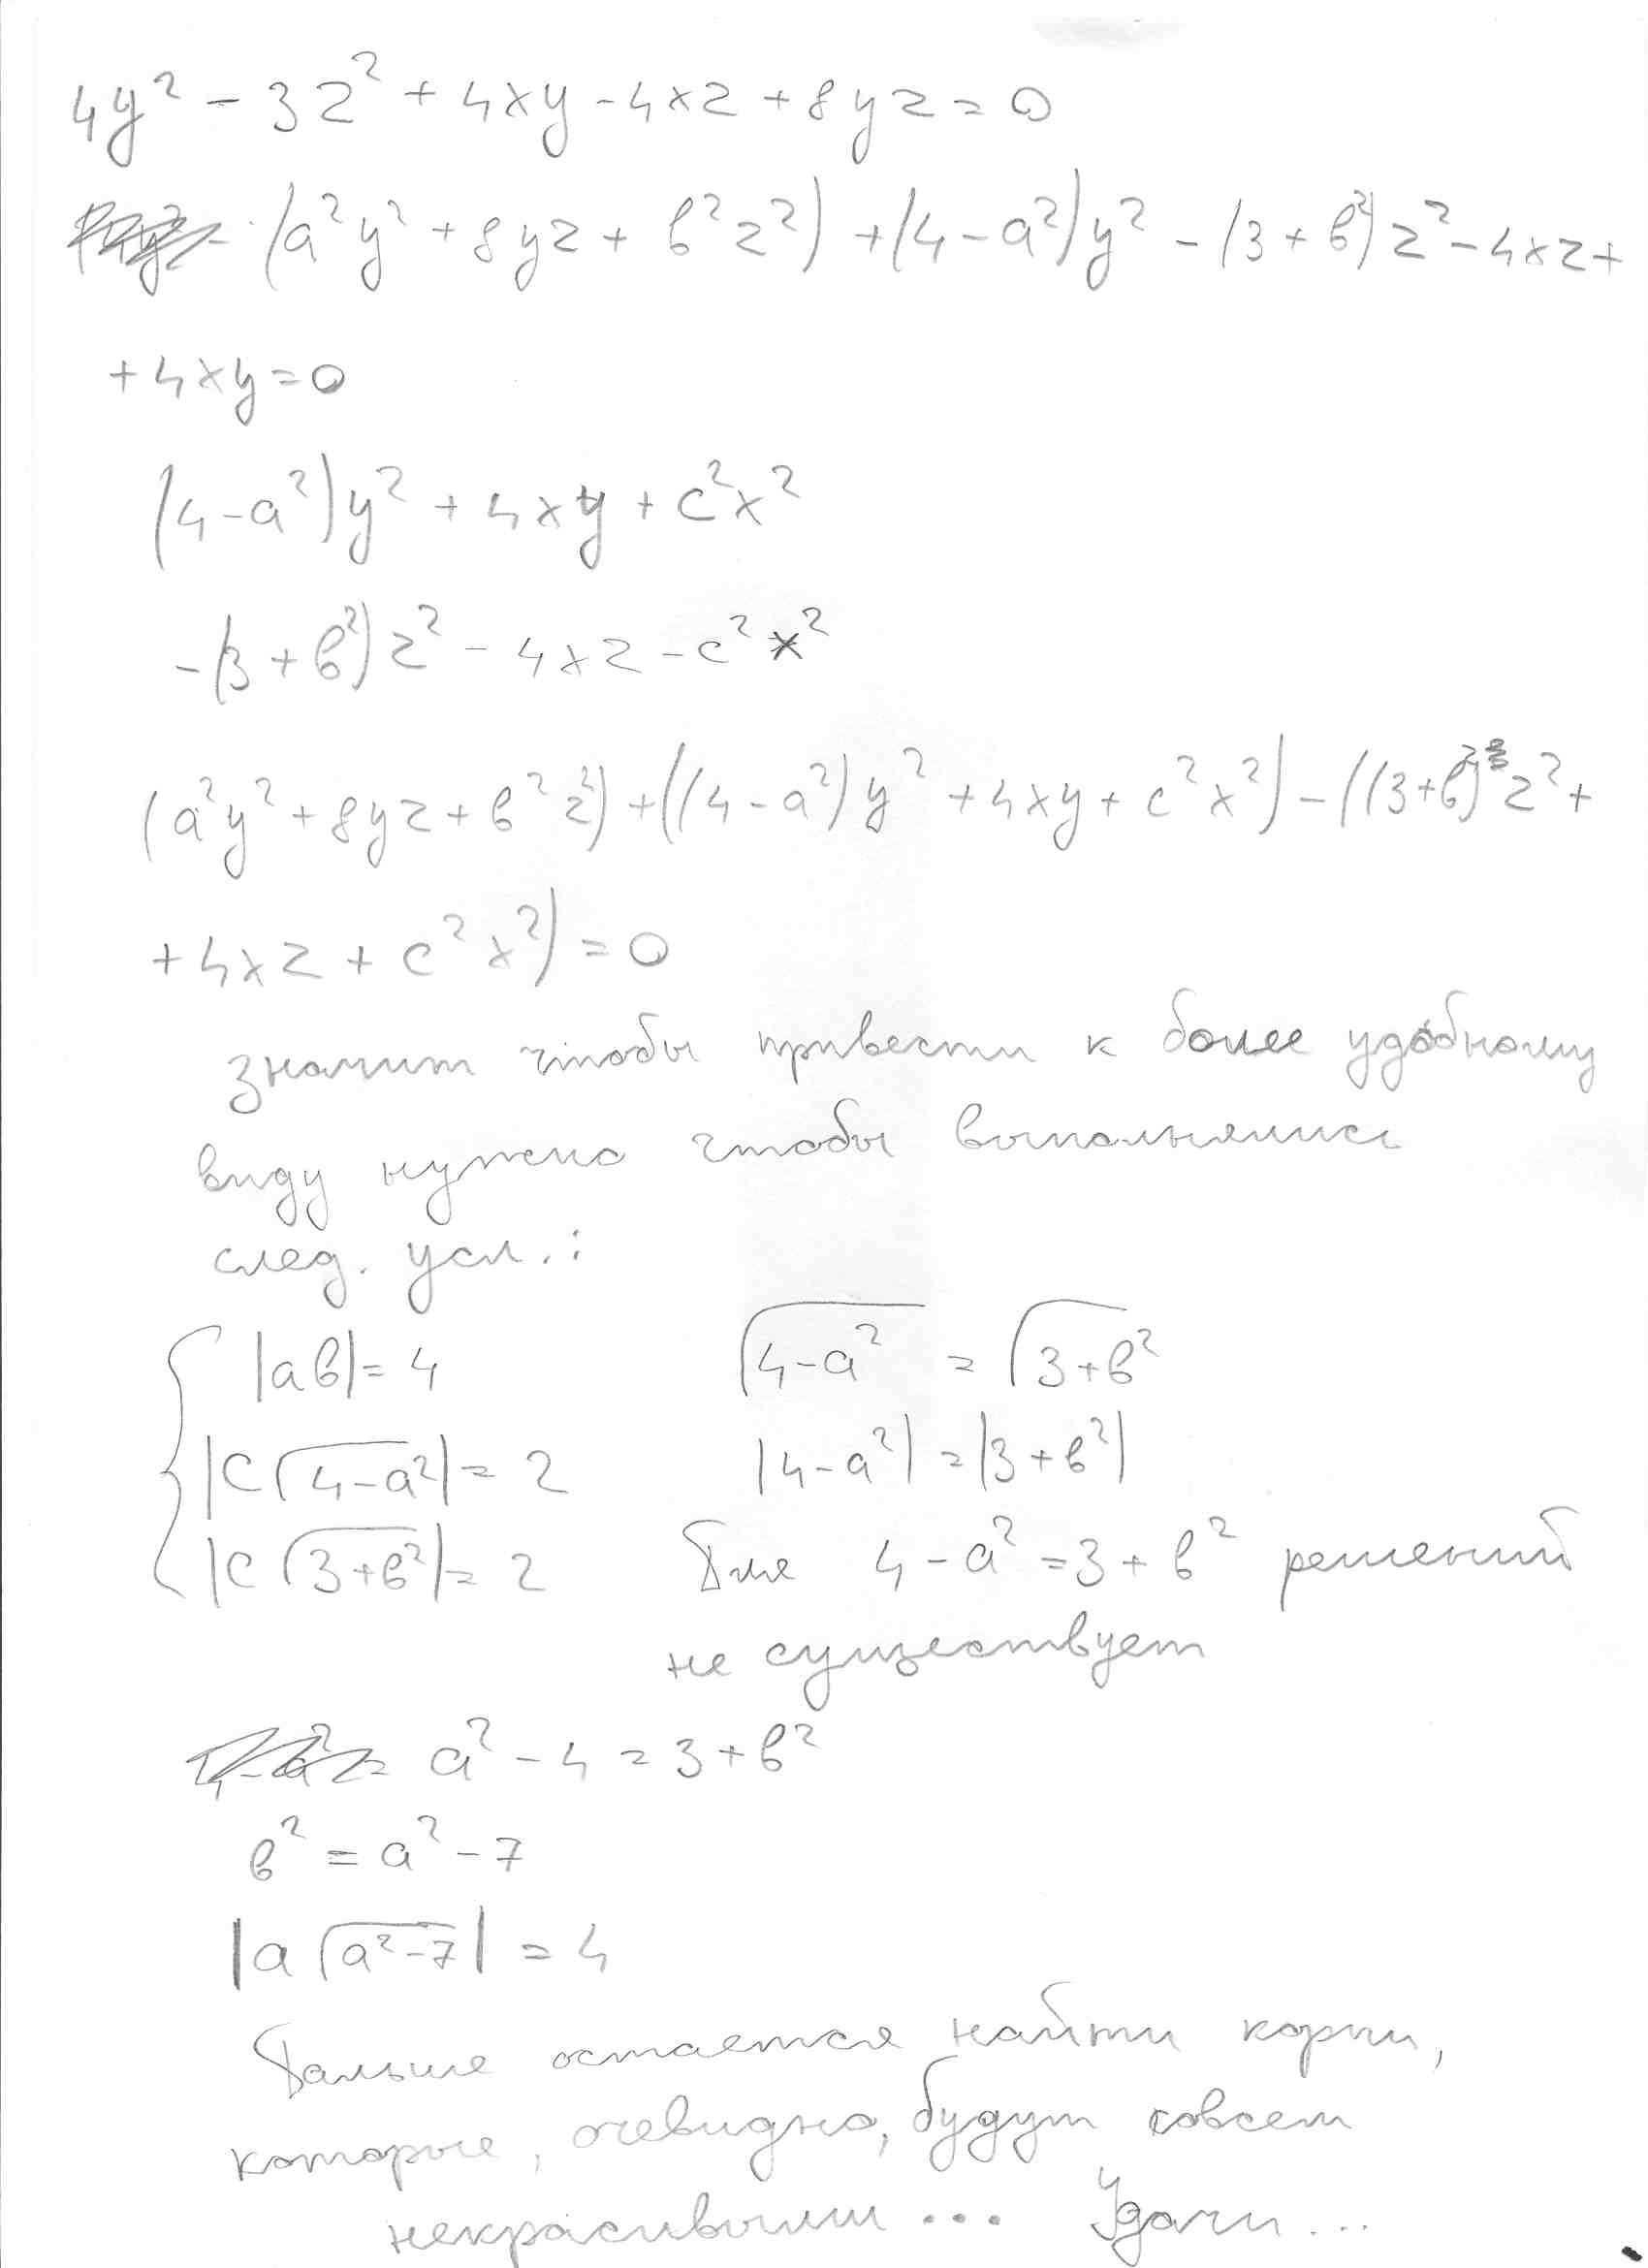 4y² - 3z² + 4xy - 4xz + 8yz = 0
(a²y² + 8yz + в²z²) + (4 - a²)y² - (3 + в²)z² - 4xz +
+ 4xy = 0
(4 - a²)y² + 4xy + c²x²
-(3 + в²)z² - 4xz - c²x²
(a²y² + 8yz + в²z²) + ((4 - a²)y² + 4xy + c²x²) - ((3 + в²)z² +
+ 4xz + c²x²) = 0
значит чтобы привести к более удобному
виду нужно чтобы выполнялись
след. усл.:
|aв| = 4 √(4 - a²) = √(3 + в²)
|c√(4 - a²)| = 2 |4 - a²| = |3 + в²|
|c√(3 + в²)| = 2 Для 4 - a² = 3 + в² решений
не существует
a² - 4 = 3 + в²
в² = a² - 7
|a√(a² - 7)| = 4
Дальше остается найти корни,
которые, очевидно, будут совсем
некрасивыми... Удачи...